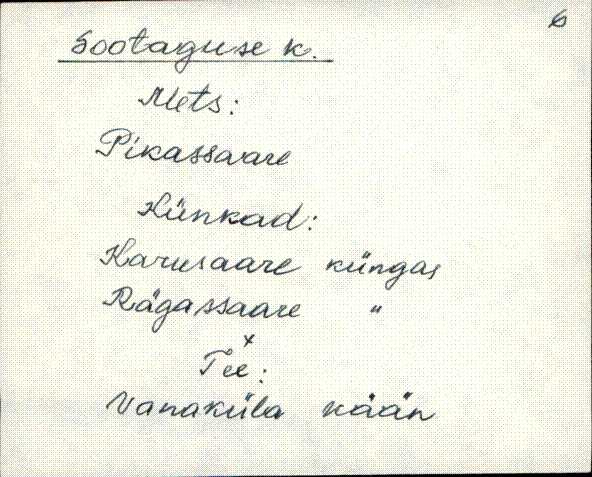 6
Sootaguse k.
Mets:
Pikassaare
Künkad:
Karusaare küngas
Rägassaare "
x
Tee:
Vanaküla kään